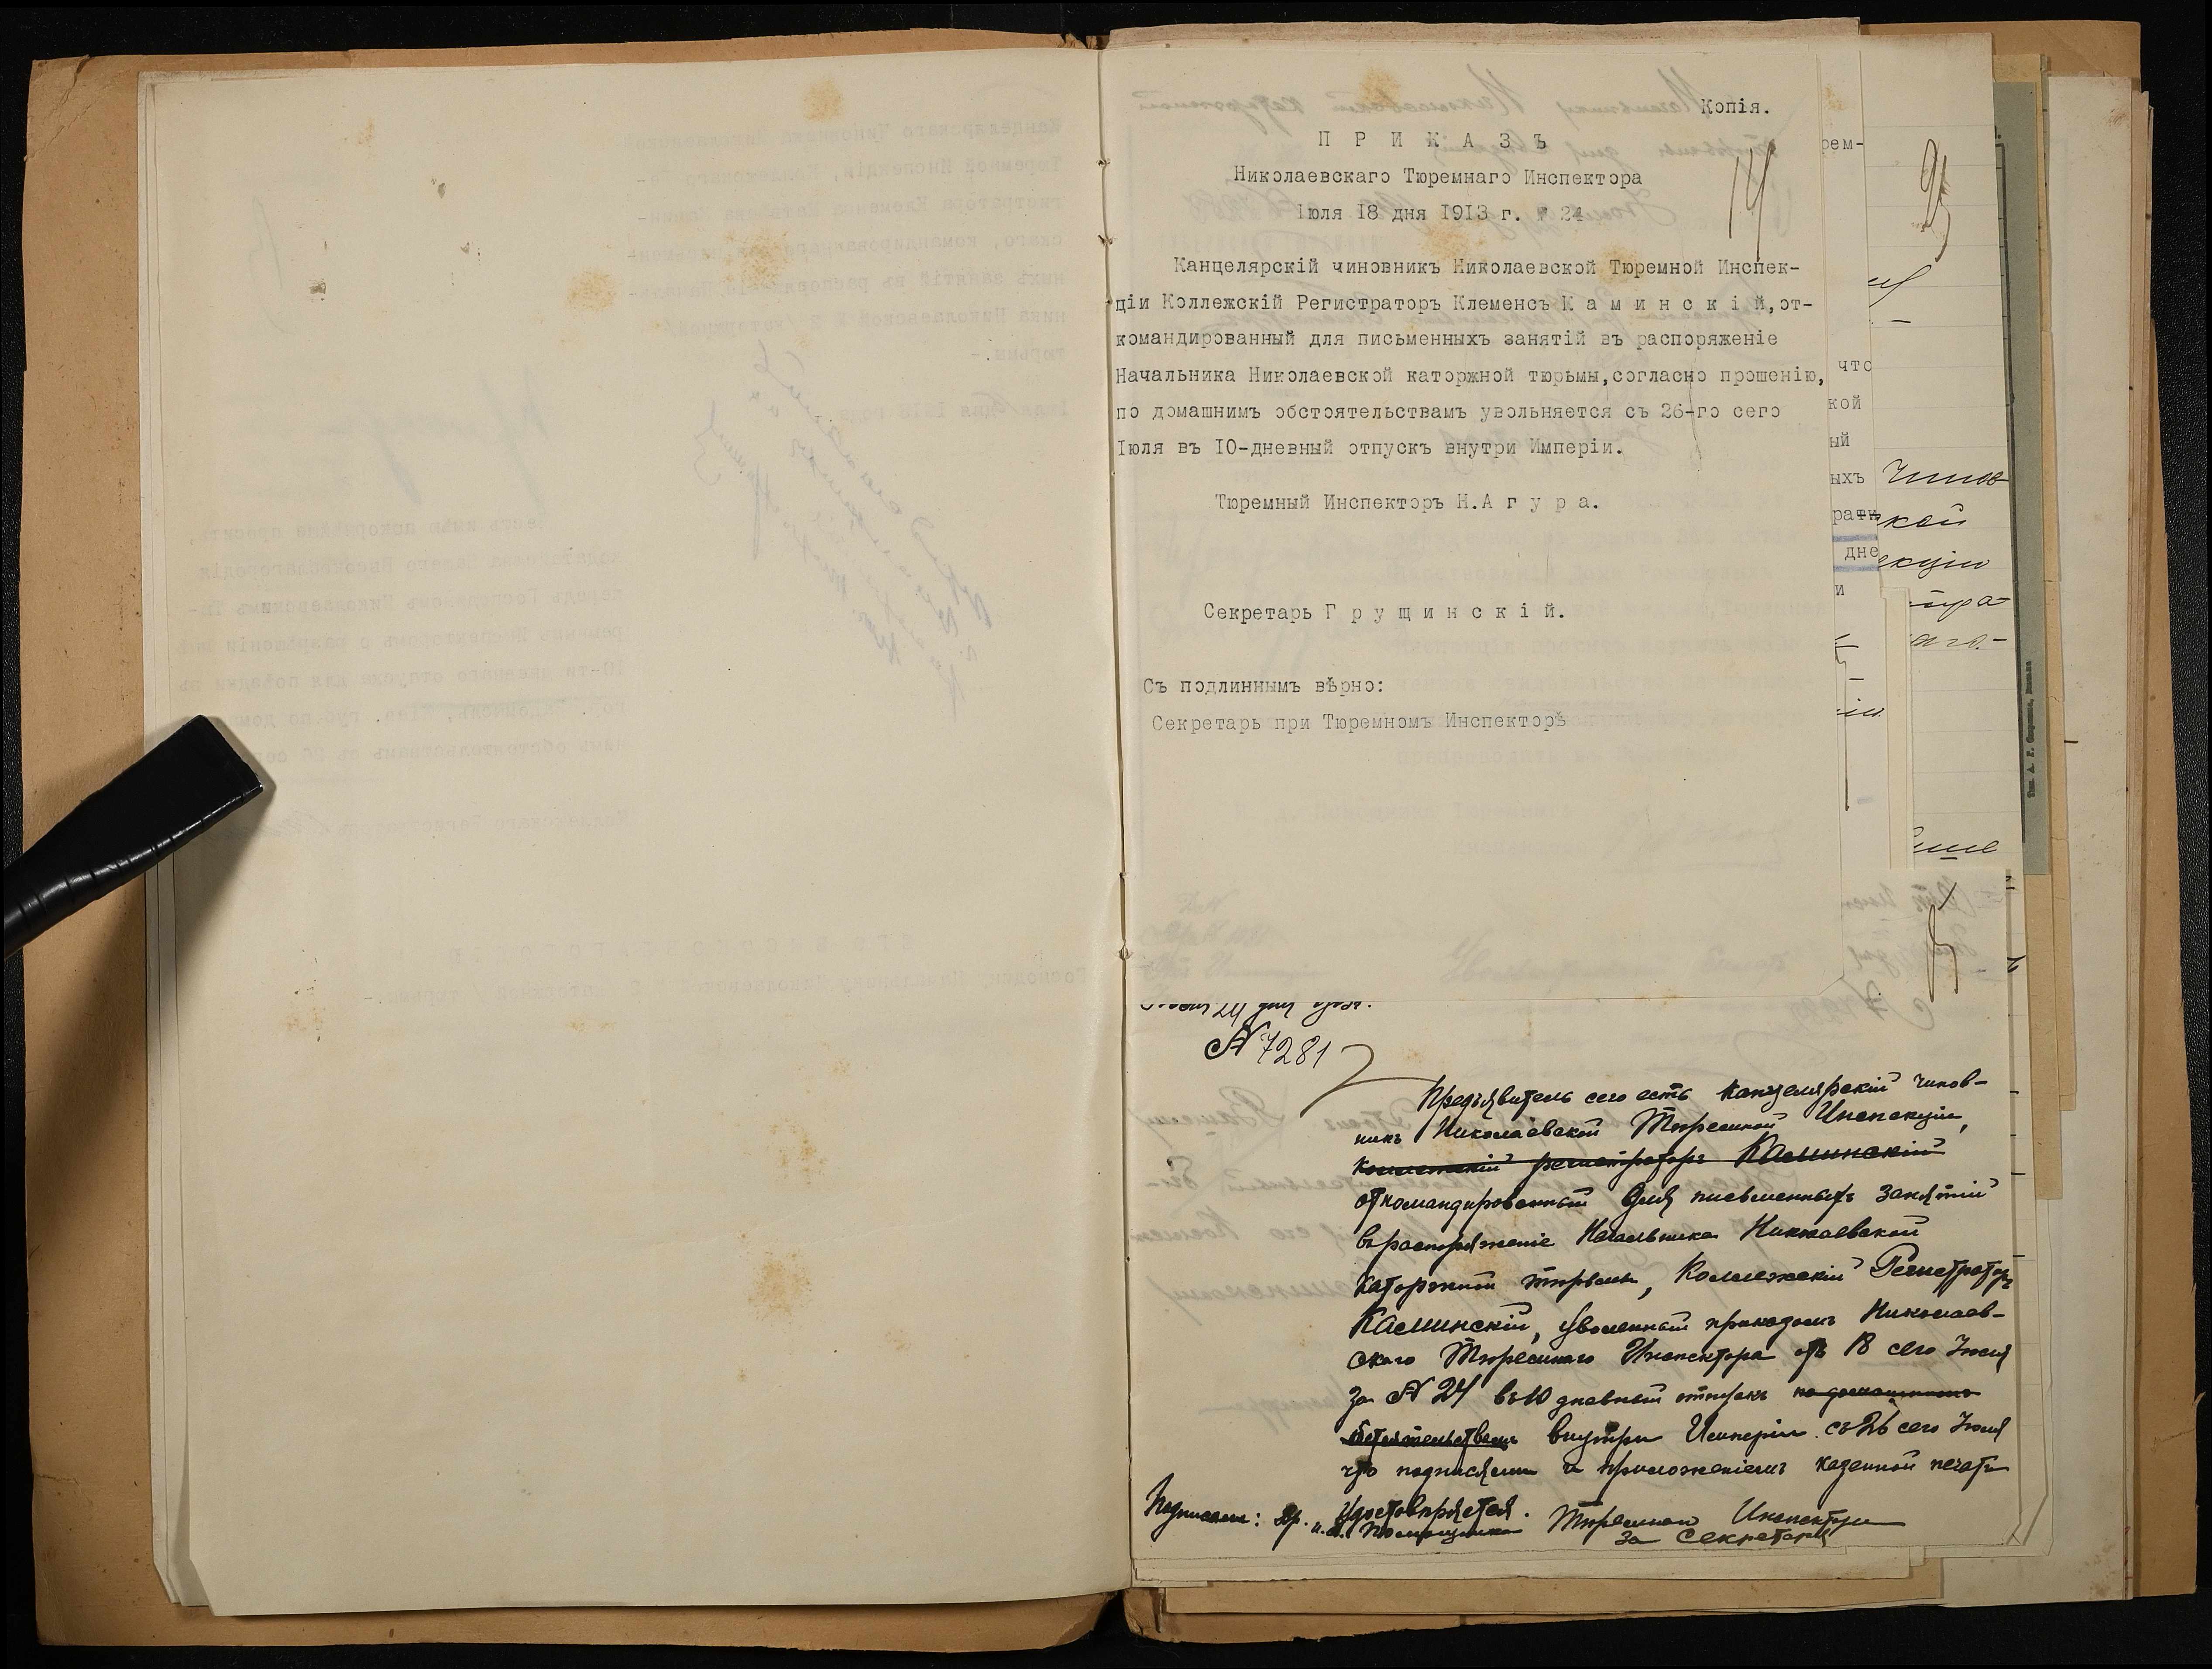 Копія.
П Р И К А З Ъ
Николаевскаго Тюремнаго Инспектора
Іюля 18 дня 1913 г. № 24
14
Канцелярскій чиновникъ Николаевской Тюремной Инспек-
ціи Коллежскій Регистраторъ Клеменсъ К а м и н с к і й, от-
командированный для письменныхъ занятій въ распоряженіе
Начальника Николаевской каторжной тюрьмы, согласно прошенію,
по домашнимъ обстоятельствамъ увольняется съ 26-го сего
Іюля въ 10-дневный отпускъ внутри Имперіи.
Тюремный Инспекторъ Н. А г у р а.
Секретарь Г р у щ и н с к і й.
Съ подлиннымъ вѣрно:
Секретарь при Тюремномъ Инспекторѣ
рем-
что
кой
ый
ыхъ
рати
дне
и
чинов
кой
екціи
№ 7281
Предъявитель сего есть канцелярскій чинов-
никъ Николаевской Тюремной Инспекціи,
коллежскій регистраторъ Каминскій
откомандированный для письменныхъ занятій
въ распоряженіе Начальника Николаевской
каторжной тюрьмы, Коллежскій Регистраторъ
Каминскій, уволенный приказомъ Николаев-
скаго Тюремнаго Инспектора отъ 18 сего Іюля
за № 24 въ 10 дневный отпускъ по домашнимъ
обстоятельствамъ внутри Имперіи съ 26 сего Іюля
что подписями и приложеніемъ казенной печати
удостовѣряется.
Подписали: и.д. Помощника Тюремнаго Инспектора
За Секретаря
Тип. А. Г.